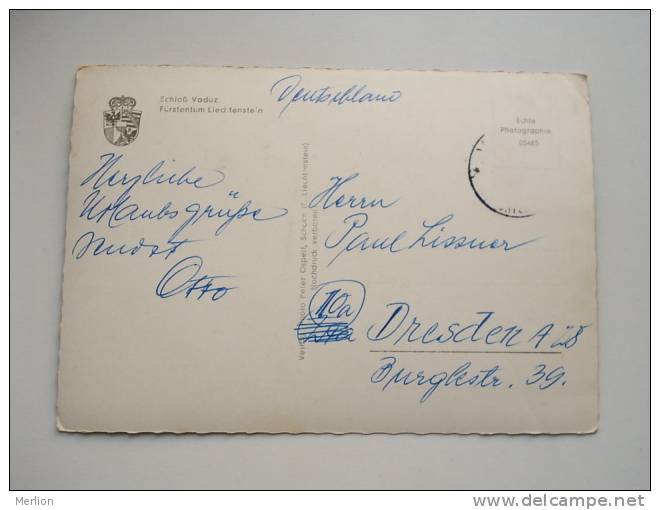 Schloß Vaduz
Fürstentum Liechtenstein
Deutschland
Echte
Photographie
05465
Herzliche
Urlaubsgrüße
sendet
Otto
Peter Ospelt, Schaan (F. Liechtenstein)
Nachdruck verboten
Herrn
Paul Lissner
10a
Dresden A 28
Burgkstr. 39.
Merlion
http://www.delcampe.net